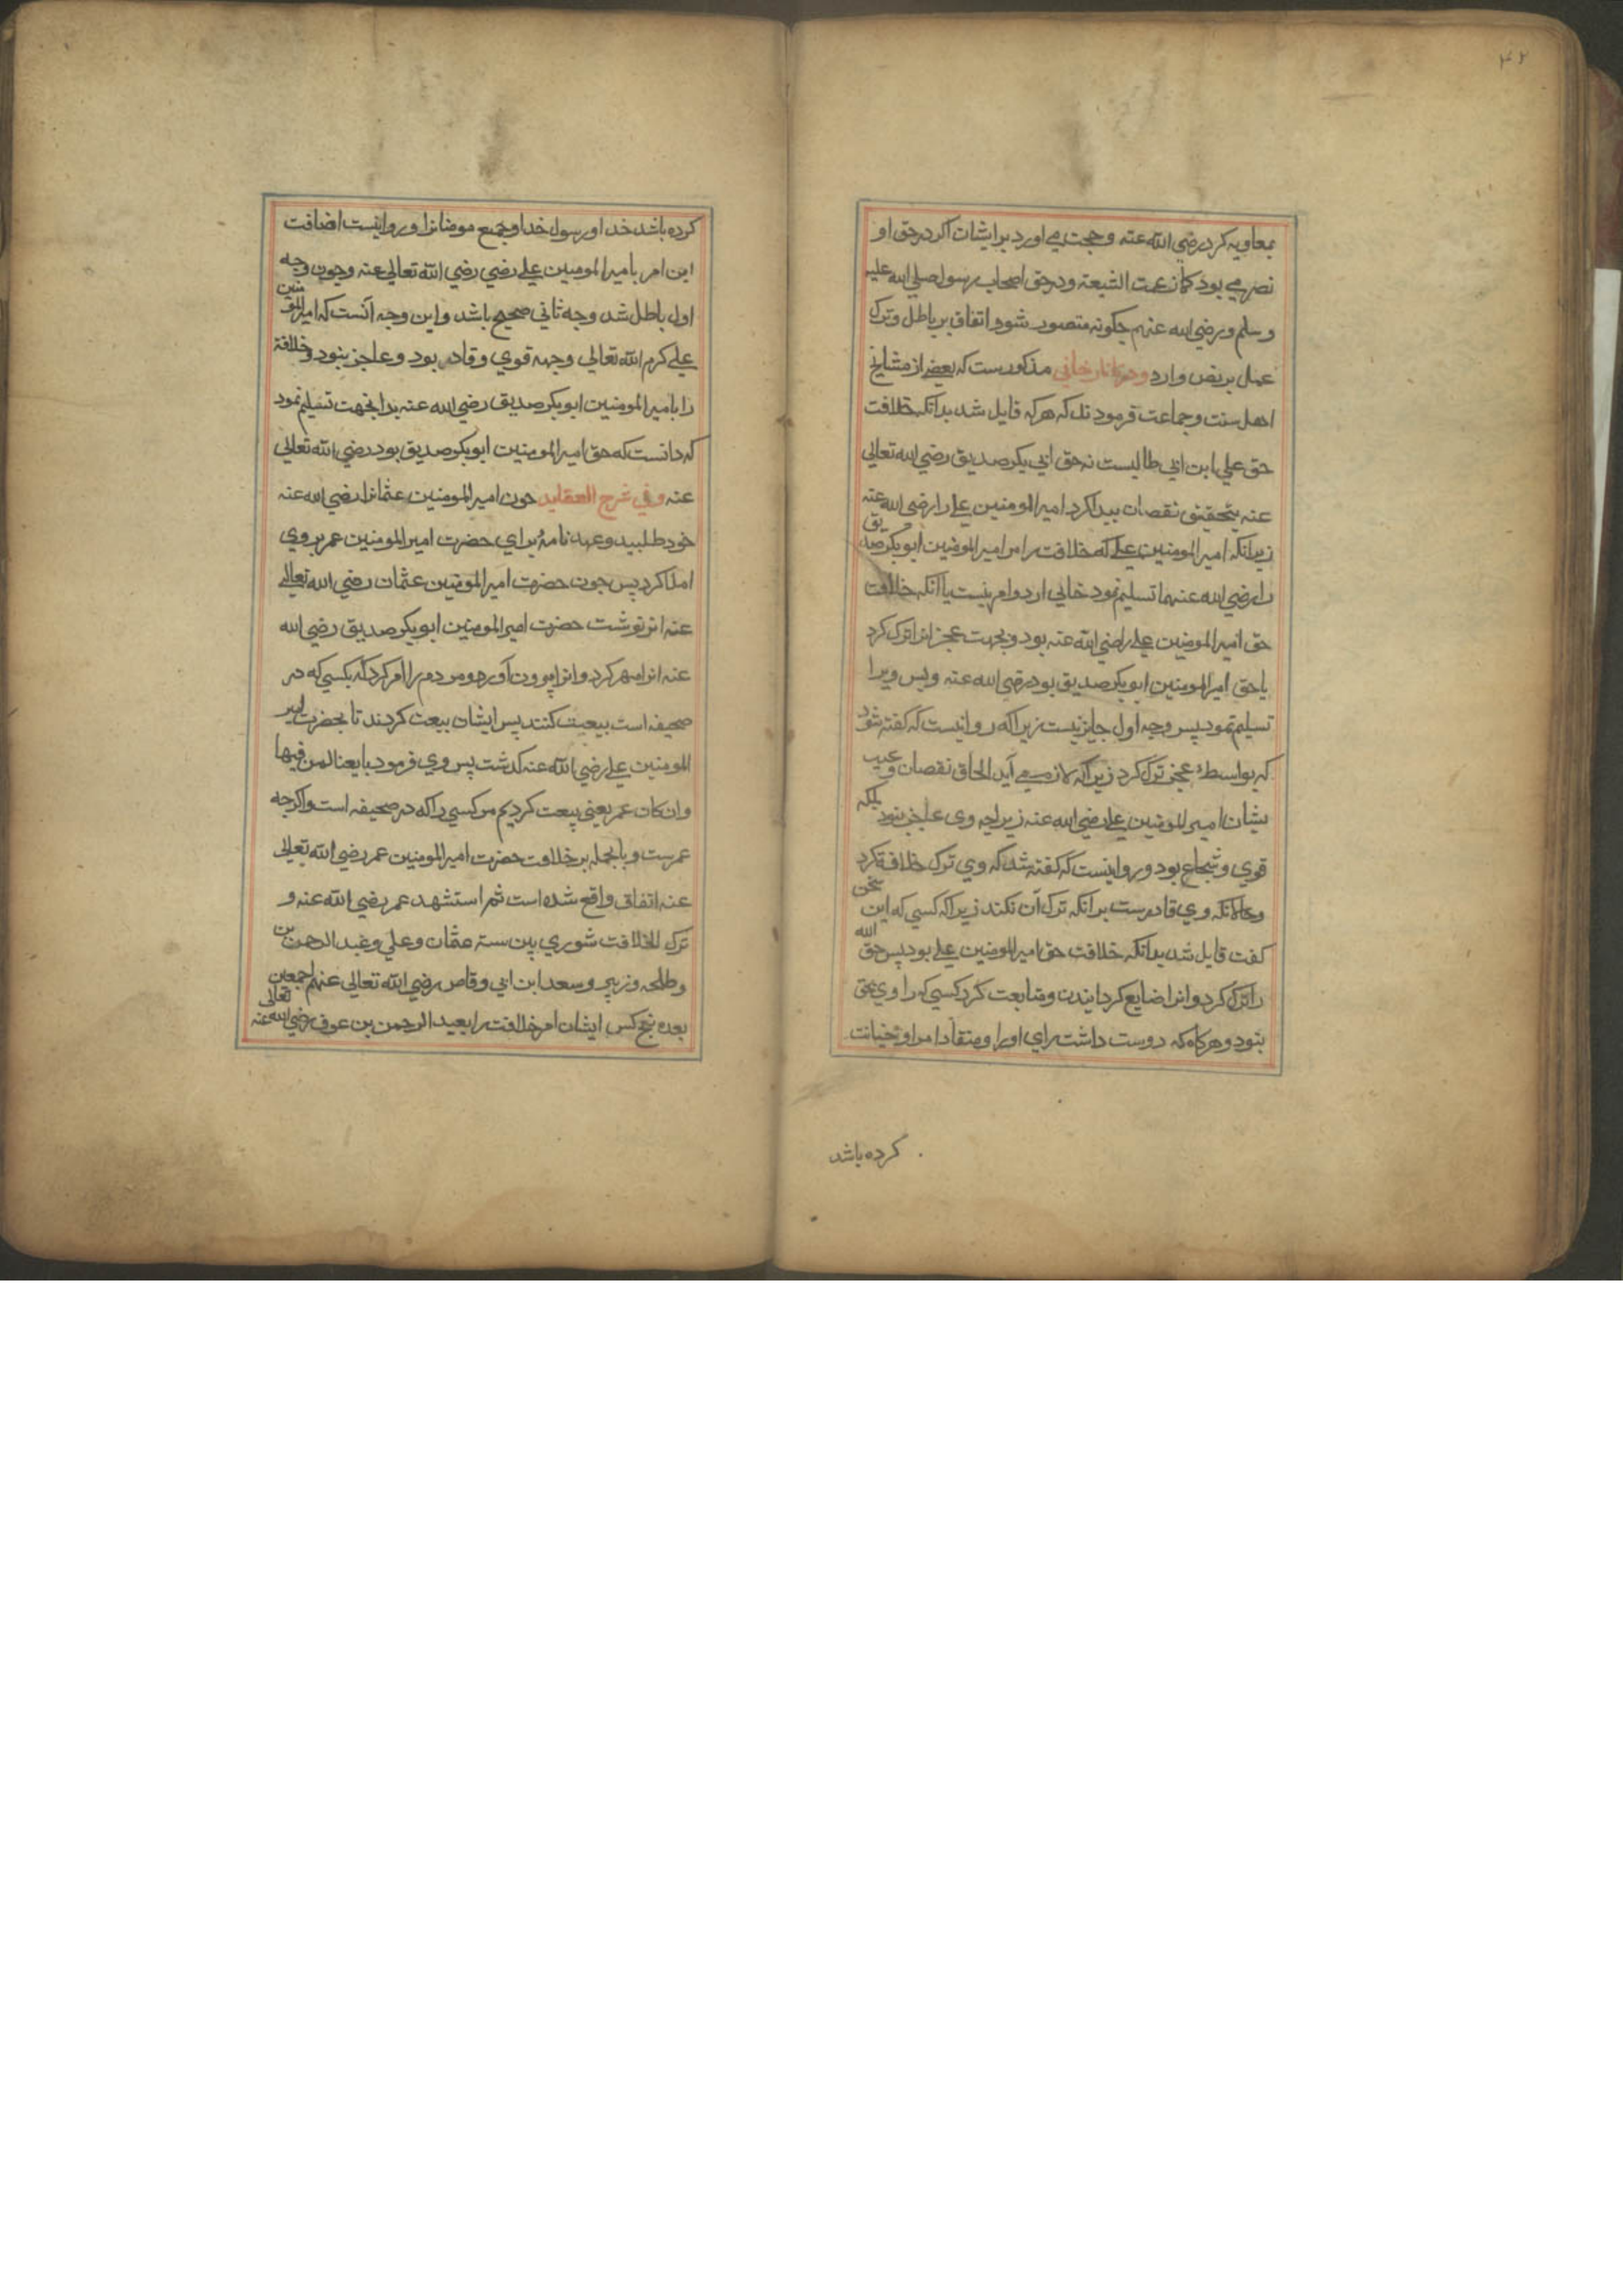 ۴۲
بمعاویه کرد رضی الله عنه وحجت می اورد بر ایشان اکر در حق او
نص می بود کما زعمت الشیعة ودر حق اصحاب رسول صلی الله علیه
وسلم ورضی الله عنهم چکونه متصور شود اتفاق بر باطل وترک
عمل بر نص وارد ودر تاتارخانی مذکورست که بعضی از مشایخ
اهل سنت وجماعت فرمودند که هر که قایل شد بدانکه خلافت
حق علی ابن ابی طالبست نه حق ابی بکر صدیق رضی الله تعالی
عنه بتحقیق نقصان پیدا کرد امیر المومنین علی را رضی الله عنه
زیرانکه امیر المومنین علی که خلافت را مر امیر المومنین ابو بکر صدیق
را رضی الله عنهما تسلیم نمود خالی از دو امر نیست یا آنکه خلافت
حق امیر المومنین علی رضی الله عنه بود وبجهت عجز انرا ترک کرد
یا حق امیر المومنین ابو بکر صدیق بود رضی الله عنه وپس ویرا
تسلیم نمود پس وجه اول جایز نیست زیرا که روا نیست که کفته شود
که بواسطهٔ عجز ترک کرد زیرا که لازم می آید الحاق نقصان وعیب
بشان امیر المومنین علی رضی الله عنه زیراچه وی عاجز نبود بلکه
قوی وشجاع بود وروا نیست که کفته شد که وی ترک خلافة کرد
وحالانکه وی قادرست برانکه ترک آن نکند زیرا که کسی که این سخن
کفت قایل شد بدانکه خلافت حق امیر المومنین علی بود پس حق الله
را ترک کرد وانرا ضایع کردانیدن ومتابعت کرد کسی که را وی بحق
نبود وهرکاه که دوست داشت رای او را ومنقاد امر او بخیانت
کرده باشد
کرده باشد خدا ورسول خدا وجمیع مومنانرا وروا نیست اضافت
این امر بامیر المومنین علی رضی رضی الله تعالی عنه وچون وجه
اول باطل شد وجه ثانی صحیح باشد واین وجه آنست که امیر المومنین
علی کرم الله تعالی وجهه قوی وقادر بود وعاجز نبود وخلافة
را بامیر المومنین ابو بکر صدیق رضی الله عنه بدانجهت تسلیم نمود
که دانست که حق امیر المومنین ابو بکر صدیق بود رضی الله تعالی
عنه وفی شرح العقاید چون امیر المومنین عثمانرا رضی الله عنه
خود طلبید وعهد نامهٔ برای حضرت امیر المومنین عمر بروی
املا کرد پس چون حضرت امیر المومنین عثمان رضی الله تعالی
عنه انرا نوشت حضرت امیر المومنین ابو بکر صدیق رضی الله
عنه انرا مهر کرد وانرا بیرون آورد ومردم را امر کرد که بکسی که در
صحیفه است بیعت کنند پس ایشان بیعت کردند تا بحضرت امیر
المومنین علی رضی الله عنه کذشت پس وی فرمود بایعنا لمن فیها
وان کان عمر یعنی بیعت کردیم مر کسی را که در صحیفه است واکرچه
عمرست وبالجمله بر خلافت حضرت امیر المومنین عمر رضی الله تعالی
عنه اتفاق واقع شده است ثم استشهد عمر رضی الله عنه و
ترک الخلافت شوری بین ستة عثمان وعلی وعبد الرحمن بن
وطلحه وزبیر وسعد ابن ابی وقاص رضی الله تعالی عنهم اجمعین
بعده پنج کس ایشان امر خلافت را بعبد الرحمن بن عوف رضی الله تعالی عنه